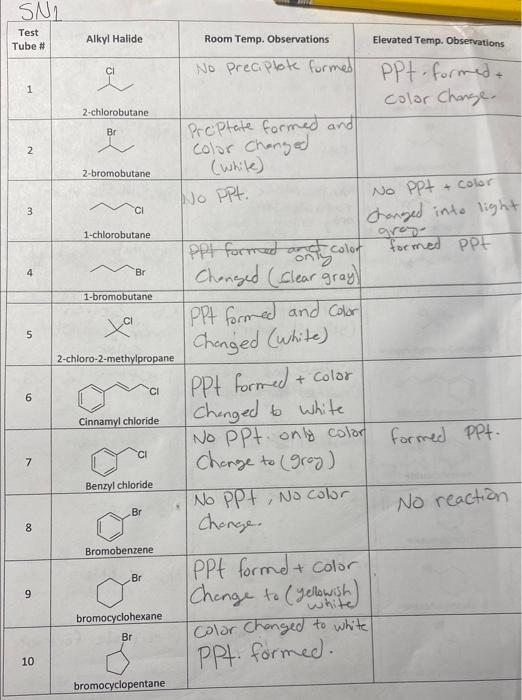 SN1
Test
Tube #
Alkyl Halide
Room Temp. Observations
Elevated Temp. Observations
1
Cl
2-chlorobutane
No Preciplate formed
PPt. formed +
color Change.
2
Br
2-bromobutane
PrciPtate formed and
color changed
(white)
3
Cl
1-chlorobutane
No PPt.
No PPt + color
changed into light
gray.
4
Br
1-bromobutane
PPt formed and color
only
Changed (clear gray)
formed PPt
5
Cl
2-chloro-2-methylpropane
PPt formed and Color
Changed (white)
6
Cl
Cinnamyl chloride
PPt formed + color
Changed to white
7
Cl
Benzyl chloride
No PPt. only color
Change to (gray)
formed PPt.
8
Br
Bromobenzene
No PPt, No color
change.
No reaction
9
Br
bromocyclohexane
PPt formed + color
Change to (yellowish
white)
10
Br
bromocyclopentane
Color Changed to white
PPt. formed.